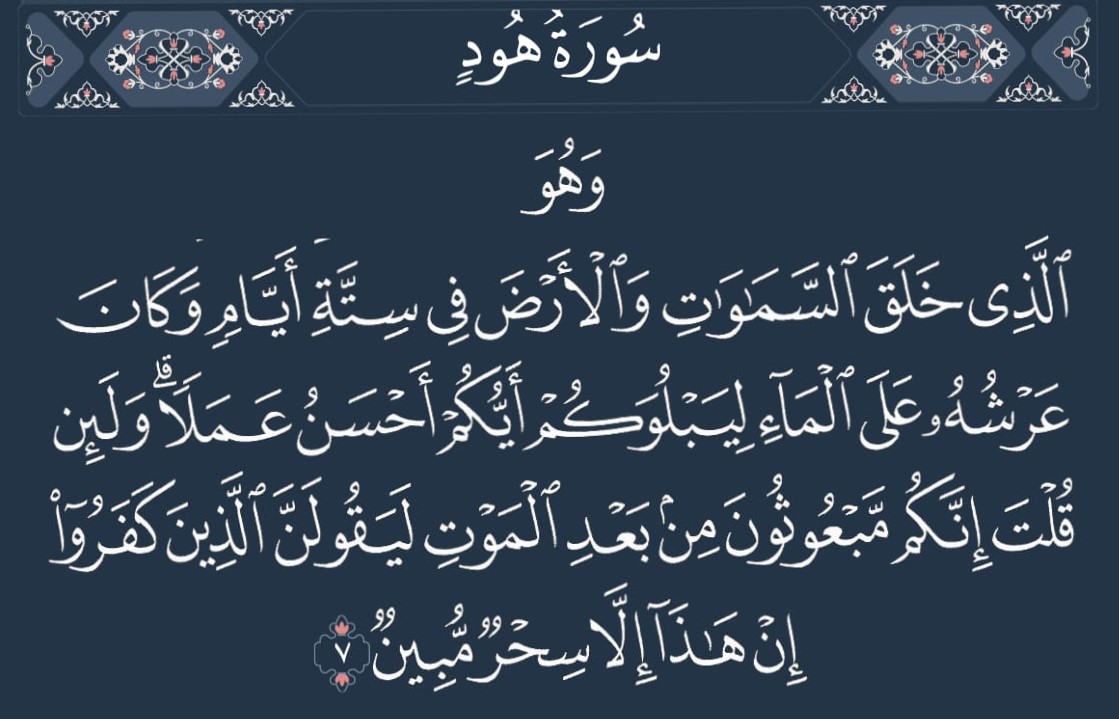 سُورَةُ هُودٍ
وَهُوَ
ٱلَّذِى خَلَقَ ٱلسَّمَـٰوَٰتِ وَٱلْأَرْضَ فِى سِتَّةِ أَيَّامٍ وَكَانَ
عَرْشُهُۥ عَلَى ٱلْمَآءِ لِيَبْلُوَكُمْ أَيُّكُمْ أَحْسَنُ عَمَلًا ۗ وَلَئِن
قُلْتَ إِنَّكُم مَّبْعُوثُونَ مِنۢ بَعْدِ ٱلْمَوْتِ لَيَقُولَنَّ ٱلَّذِينَ كَفَرُوٓا۟
إِنْ هَـٰذَآ إِلَّا سِحْرٌ مُّبِينٌ ٧